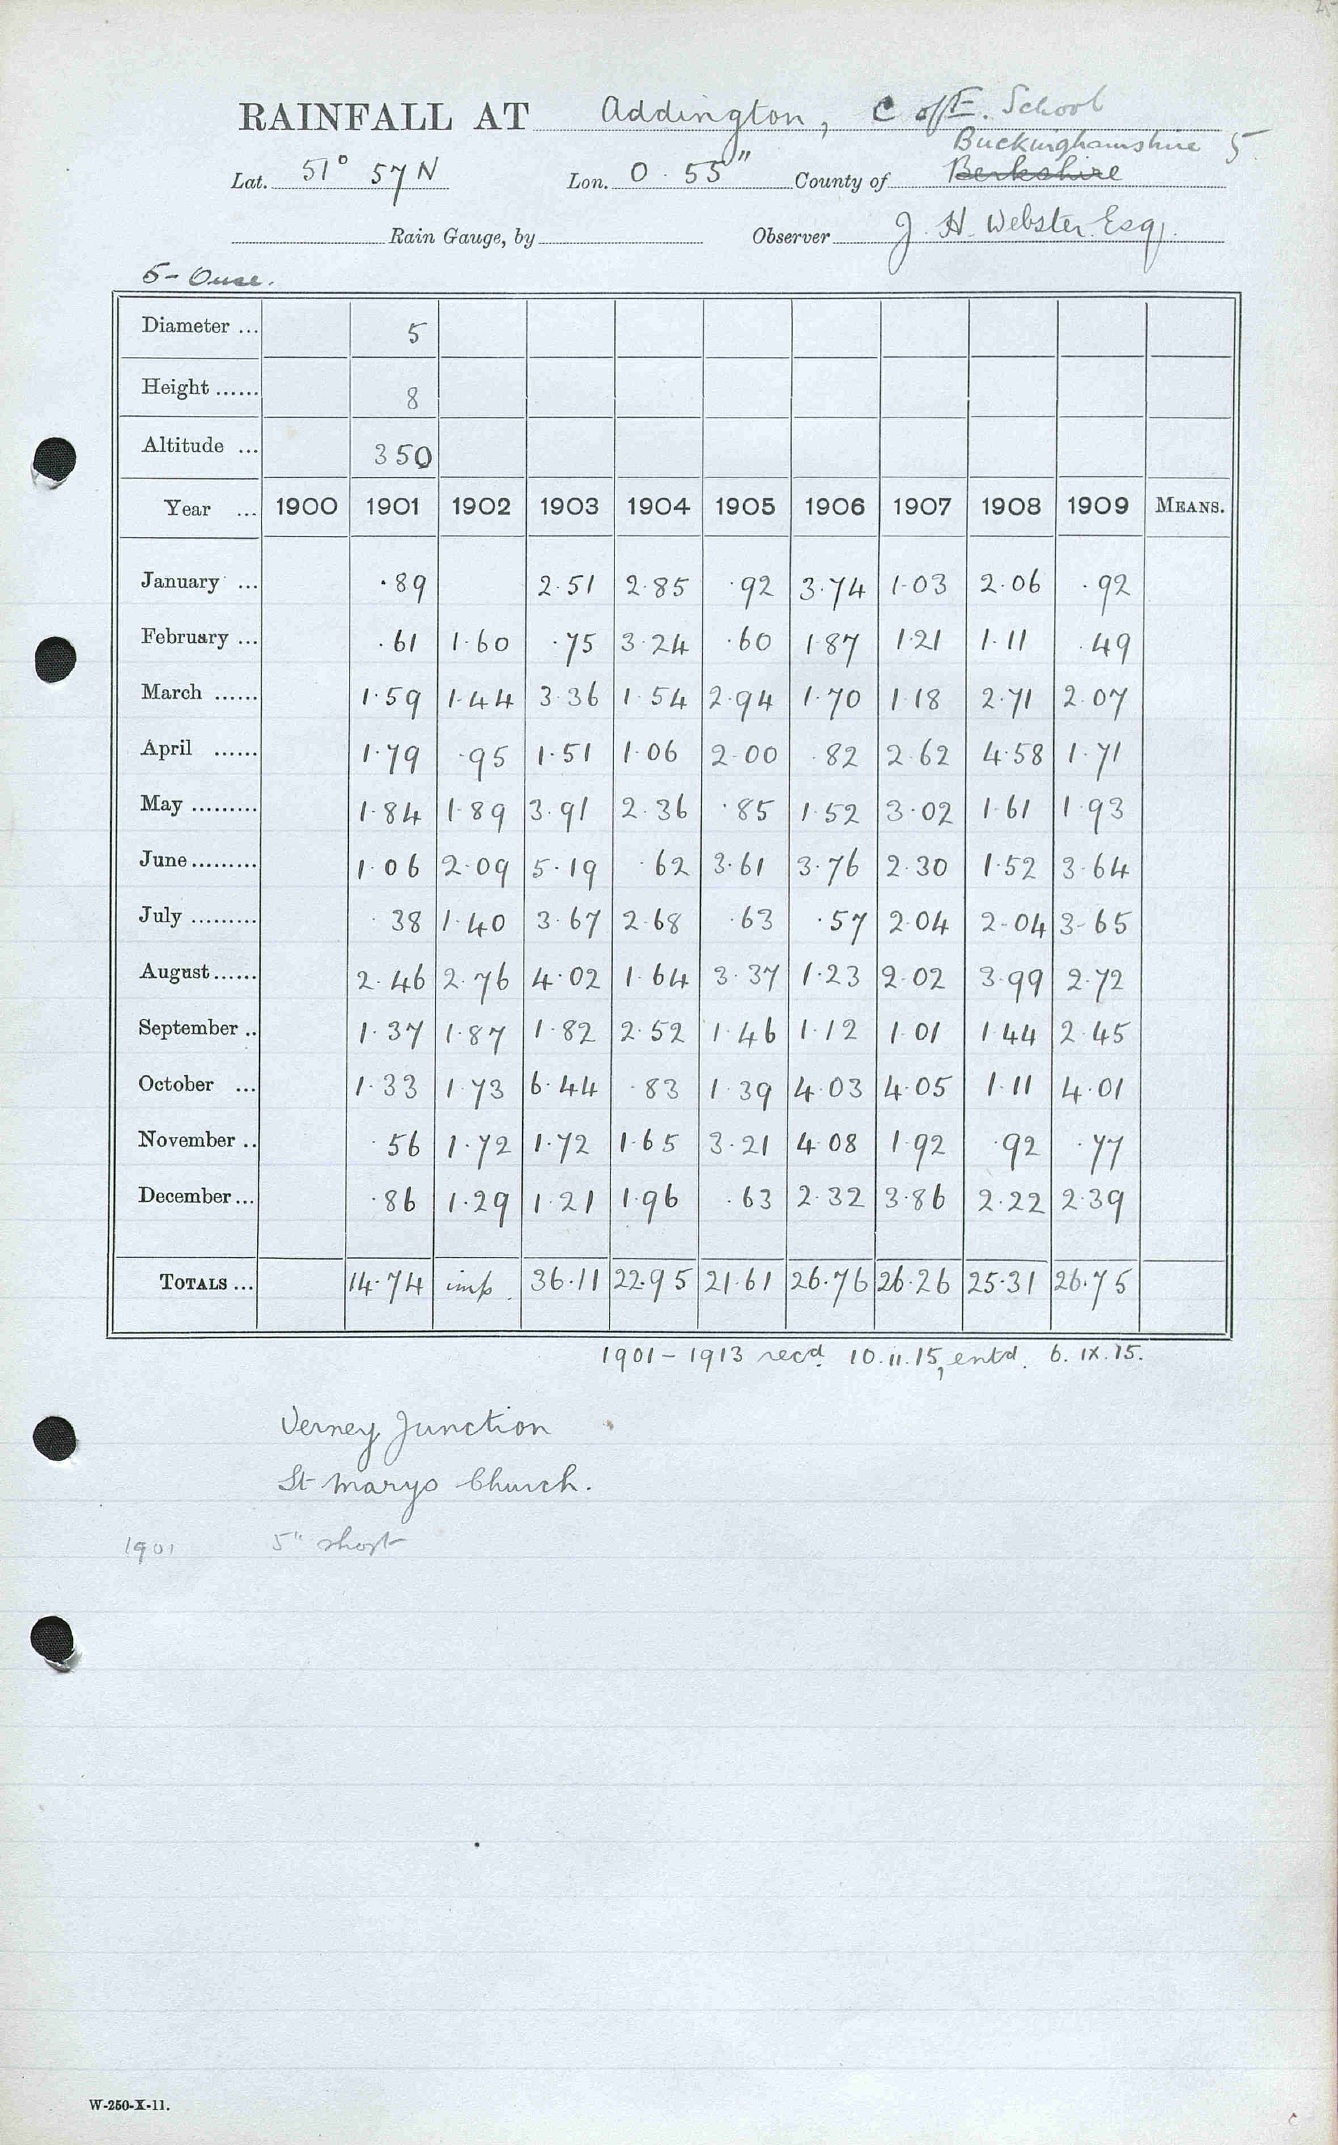 RAINFALL AT Addington, C of E. School
Buckinghamshire 5
Lat. 51° 57 N Lon. 0 . 55" County of Berkshire
Rain Gauge, by Observer J. H. Webster Esq.
5 - Ouse.
Diameter ... 5
Height ...... 8
Altitude ... 350
Year ... 1900 1901 1902 1903 1904 1905 1906 1907 1908 1909 MEANS.
January ... ·89 2·51 2·85 ·92 3·74 1·03 2·06 ·92
February ... ·61 1·60 ·75 3·24 ·60 1·87 1·21 1·11 ·49
March ...... 1·59 1·44 3·36 1·54 2·94 1·70 1·18 2·71 2·07
April ...... 1·79 ·95 1·51 1·06 2·00 ·82 2·62 4·58 1·71
May ......... 1·84 1·89 3·91 2·36 ·85 1·52 3·02 1·61 1·93
June ......... 1·06 2·09 5·19 ·62 3·61 3·76 2·30 1·52 3·64
July ......... ·38 1·40 3·67 2·68 ·63 ·57 2·04 2·04 3·65
August ...... 2·46 2·76 4·02 1·64 3·37 1·23 2·02 3·99 2·72
September .. 1·37 1·87 1·82 2·52 1·46 1·12 1·01 1·44 2·45
October ... 1·33 1·73 6·44 ·83 1·39 4·03 4·05 1·11 4·01
November .. ·56 1·72 1·72 1·65 3·21 4·08 1·92 ·92 ·77
December ... ·86 1·29 1·21 1·96 ·63 2·32 3·86 2·22 2·39
TOTALS ... 14·74 imp. 36·11 22·95 21·61 26·76 26·26 25·31 26·75
1901 - 1913 recd. 10.11.15, entd. 6.IX.15.
Verney Junction
St Marys Church.
1901 5" short
W-250-X-11.